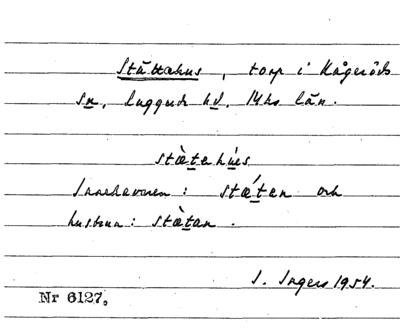 Stättahus, torp i Kågeröds
sn, Luggude hd, Mhs län.
stæ̀tehúes
Innehavaren: stǽten och
hustrun: stæ̀tan.
I. Ingers 1954.
Nr 6127.